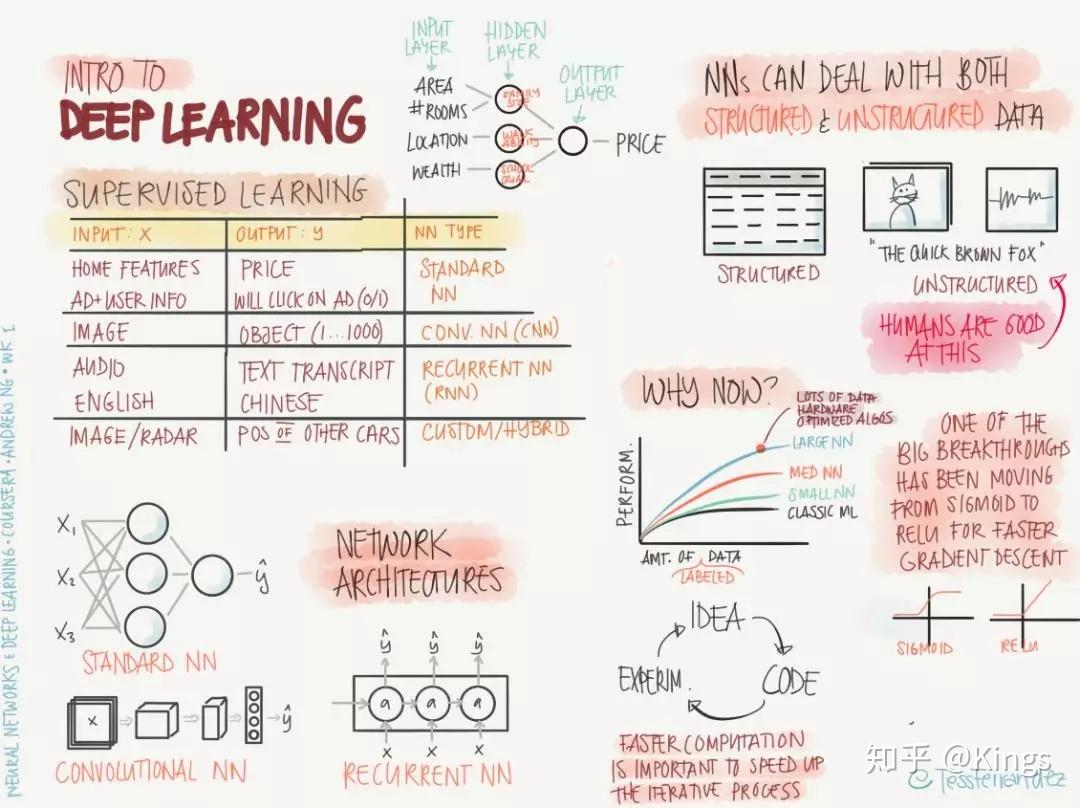 INTRO TO
DEEP LEARNING
INPUT LAYER
HIDDEN LAYER
OUTPUT LAYER
AREA
#ROOMS
LOCATION
WEALTH
FAMILY SIZE
WALK ABILITY
SCHOOL QUAL
PRICE
SUPERVISED LEARNING
INPUT: X OUTPUT: y NN TYPE
HOME FEATURES PRICE STANDARD
AD+USER INFO WILL CLICK ON AD (0/1) NN
IMAGE OBJECT (1...1000) CONV. NN (CNN)
AUDIO TEXT TRANSCRIPT RECURRENT NN
ENGLISH CHINESE (RNN)
IMAGE/RADAR POS OF OTHER CARS CUSTOM/HYBRID
NNs CAN DEAL WITH BOTH
STRUCTURED & UNSTRUCTURED DATA
STRUCTURED
"THE QUICK BROWN FOX"
UNSTRUCTURED
HUMANS ARE GOOD
AT THIS
WHY NOW?
LOTS OF DATA
HARDWARE
OPTIMIZED ALGOS
LARGE NN
MED NN
SMALL NN
CLASSIC ML
PERFORM.
AMT. OF DATA
LABELED
ONE OF THE
BIG BREAKTHROUGHS
HAS BEEN MOVING
FROM SIGMOID TO
RELU FOR FASTER
GRADIENT DESCENT
SIGMOID
RELU
IDEA
CODE
EXPERIM.
FASTER COMPUTATION
IS IMPORTANT TO SPEED UP
THE ITERATIVE PROCESS
NETWORK
ARCHITECTURES
X1
X2
X3
ŷ
STANDARD NN
X
ŷ
CONVOLUTIONAL NN
ŷ ŷ ŷ
a a a
X X X
RECURRENT NN
NEURAL NETWORKS & DEEP LEARNING • COURSERA • ANDREW NG • WK 1
知乎 @Kings
© Tessfernandez